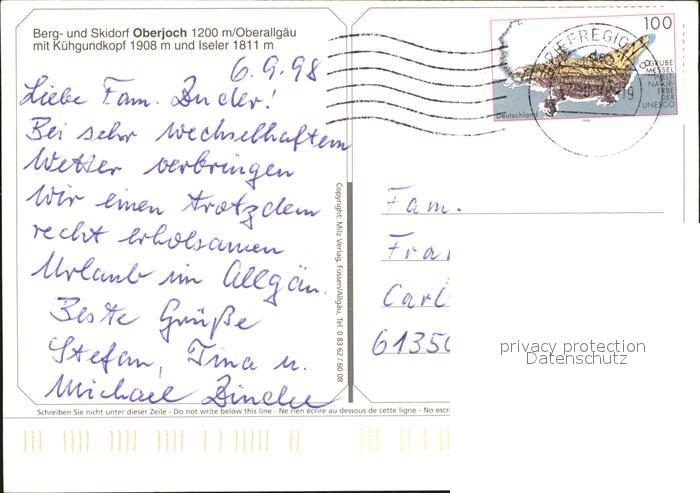 Berg- und Skidorf Oberjoch 1200 m/Oberallgäu
mit Kühgundkopf 1908 m und Iseler 1811 m
6.9.98
Liebe Fam.
Bei sehr wechselhaftem
Wetter verbringen
wir einen trotzdem
recht erholsamen
Urlaub im Allgäu.
Beste Grüße
Stefan, Tina u.
Michael
Copyright: Milz Verlag, Füssen/Allgäu, Tel. 0 83 62 / 60 08
100
GRUBE
MESSEL
WELT-
NATUR-
ERBE
DER
UNESCO
Deutschland
BRIEFREGION
Fam.
Carl
6135
privacy protection
Datenschutz
Schreiben Sie nicht unter dieser Zeile - Do not write below this line - Ne rien écrire au dessous de cette ligne - No escri